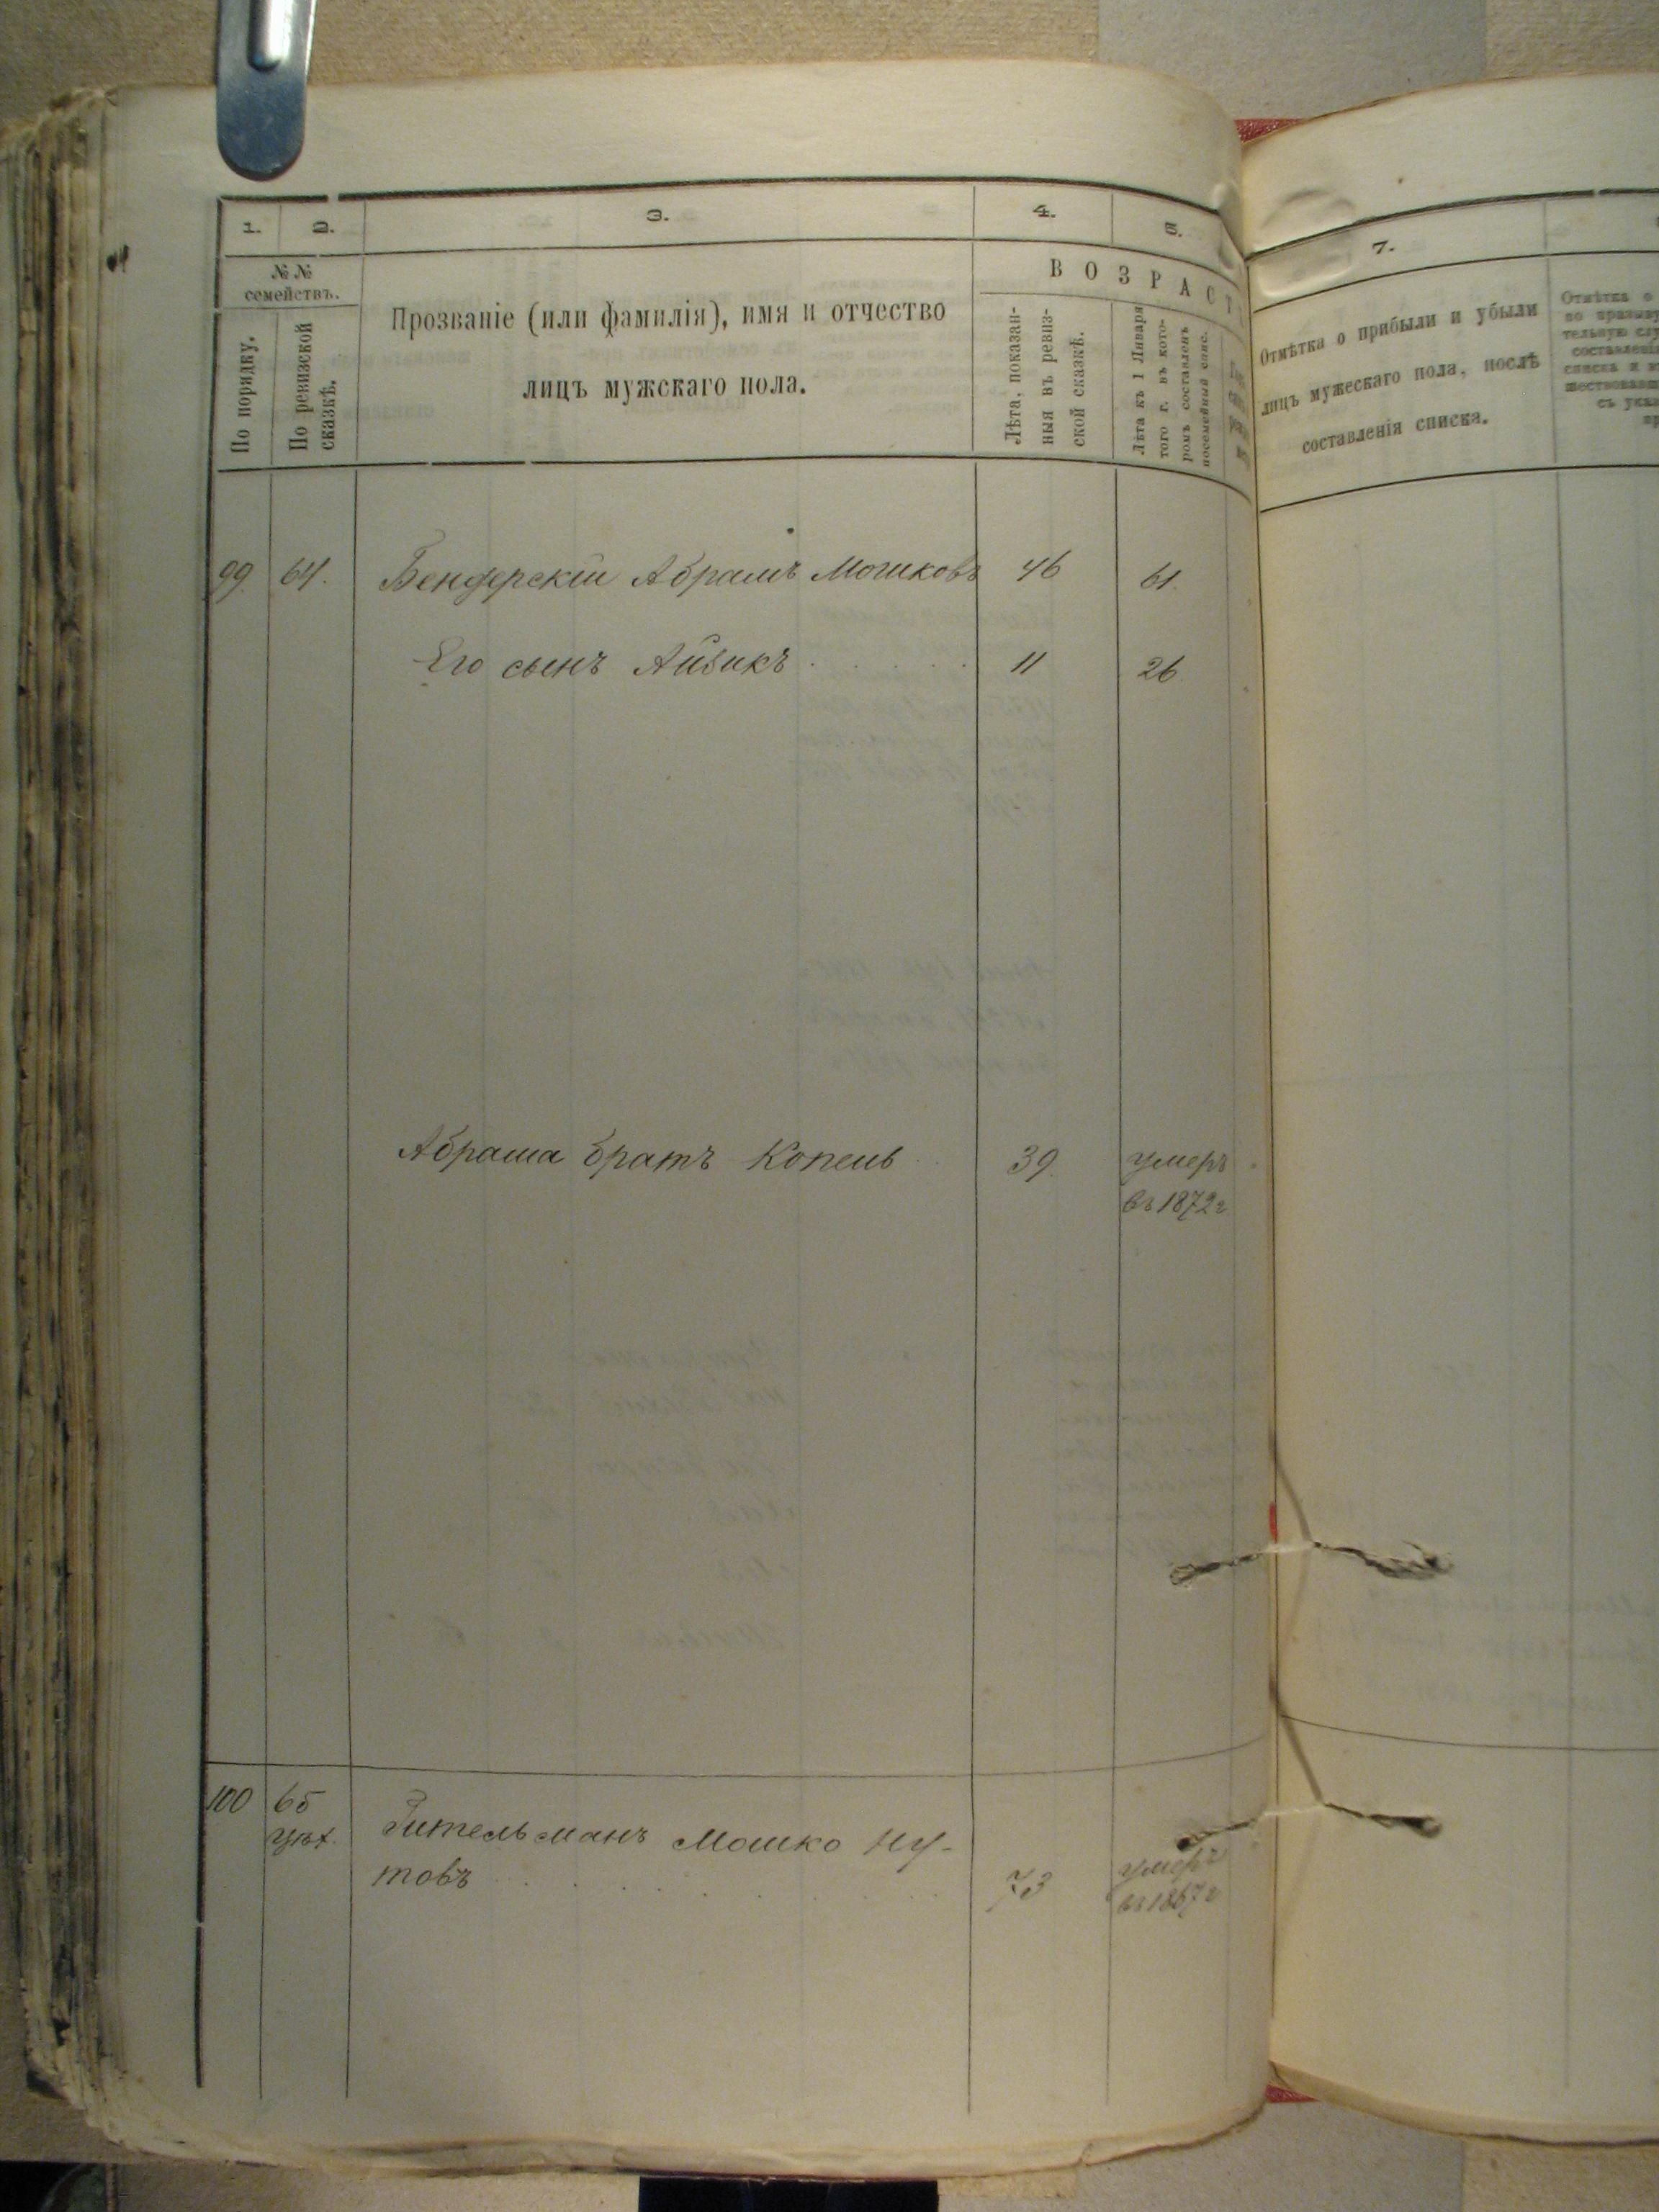 1.
2.
3.
4.
5.
№ №
семействъ.
По порядку.
По ревизской
сказкѣ.
Прозваніе (или фамилія), имя и отчество
лицъ мужскаго пола.
ВОЗРАСТ
Лѣта, показан-
ныя въ ревиз-
ской сказкѣ.
Лѣта къ 1 Января
того г. въ кото-
ромъ составленъ
посемейный спис.
99. 64. Бендерскій Абрамъ Мошковъ 46 61.
Его сынъ Айзикъ 11 26.
Абраша братъ Копель 39. умеръ
въ 1872 г
100 65
Зительманъ Мошко Ну-
товъ 73 умеръ
въ 1867 г
7.
Отмѣтка о прибыли и убыли
лицъ мужескаго пола, послѣ
составленія списка.
Отмѣтка о
по призыву
составлені
списка и
съ указ